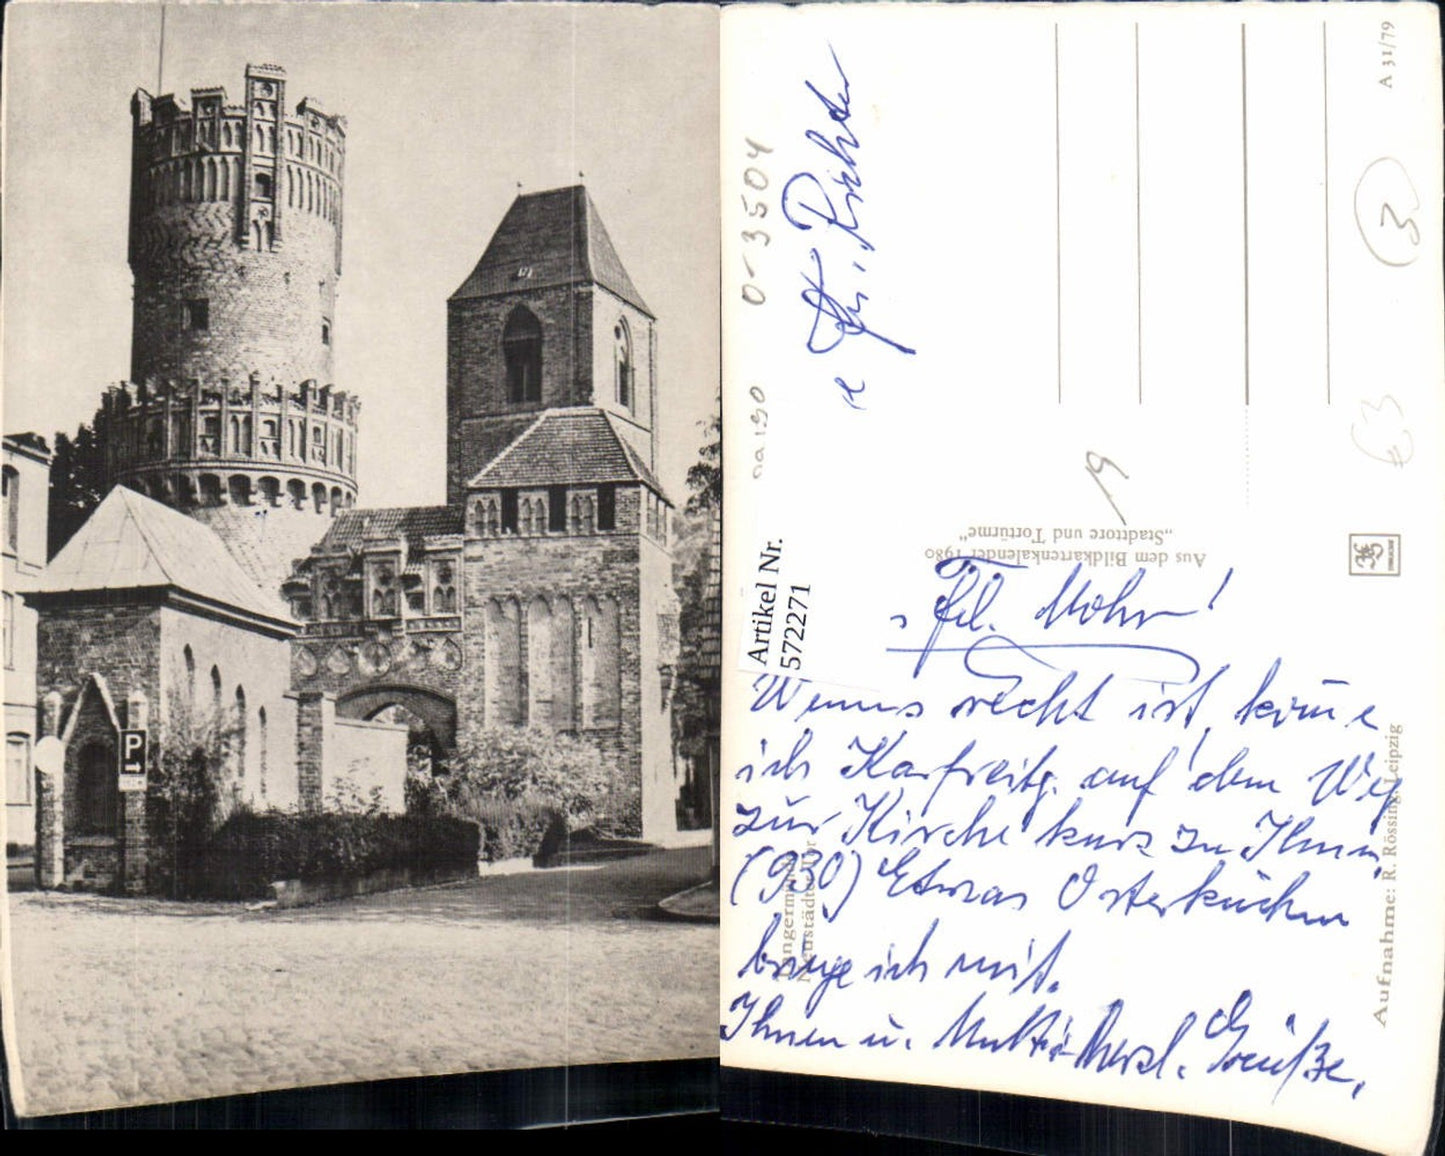 P
0-3504
na 190
Artikel Nr.
572271
Fr. Richter
A 31/79
3
€3
19
Aus dem Bildkartenkalender 1980
„Stadttore und Tortürme“
Frl. Mohr!
Wenns recht ist, komme
ich Karfreitg. auf dem Weg
zur Kirche kurz zu Ihnen
(930) Etwas Osterkuchen
bringe ich mit.
Ihnen u. Mutti herzl. Grüße,
Tangermünde
Neustädter Tor
Aufnahme: R. Rössing, Leipzig